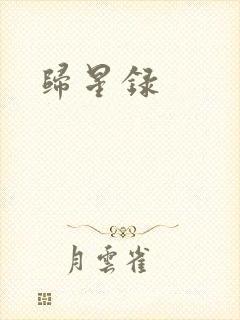 歸星録
月雲雀